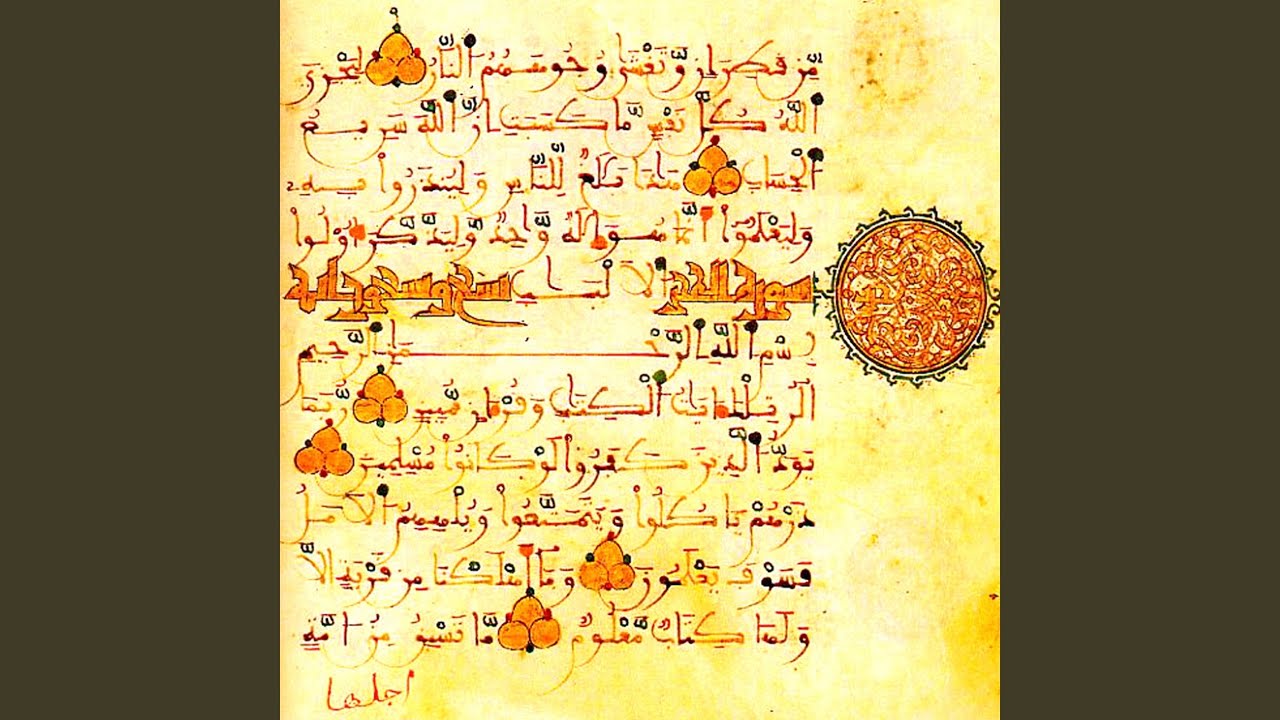 مِّن قَطِرَانٍ وَّتَغْشَىٰ وُجُوهَهُمُ النَّارُ لِيَجْزِيَ
اللَّهُ كُلَّ نَفْسٍ مَّا كَسَبَتِ انَّ اللَّهَ سَرِيعُ
الْحِسَابِ هَٰذَا بَلَٰغٌ لِّلنَّاسِ وَلِيُنذَرُواْ بِهِ
وَلِيَعْلَمُواْ أَنَّمَا هُوَ إِلَٰهٌ وَّاحِدٌ وَّلِيَذَّكَّرَ أُوْلُواْ
سورة الحجر الَالْبَٰبِ تسع وتسعون اية
بِسْمِ اللَّهِ الرَّحْمَٰنِ الرَّحِيمِ
الَر تِلْكَ ءَايَٰتُ الْكِتَٰبِ وَقُرْءَانٍ مُّبِينٍ رُّبَمَا
يَوَدُّ الَّذِينَ كَفَرُواْ لَوْ كَانُواْ مُسْلِمِينَ
ذَرْهُمْ يَاكُلُواْ وَيَتَمَتَّعُواْ وَيُلْهِهِمُ الَامَلُ
فَسَوْفَ يَعْلَمُونَ وَمَا أَهْلَكْنَا مِن قَرْيَةٍ الَّا
وَلَهَا كِتَابٌ مَّعْلُومٌ مَّا تَسْبِقُ مِنُ امَّةٍ
اجلها